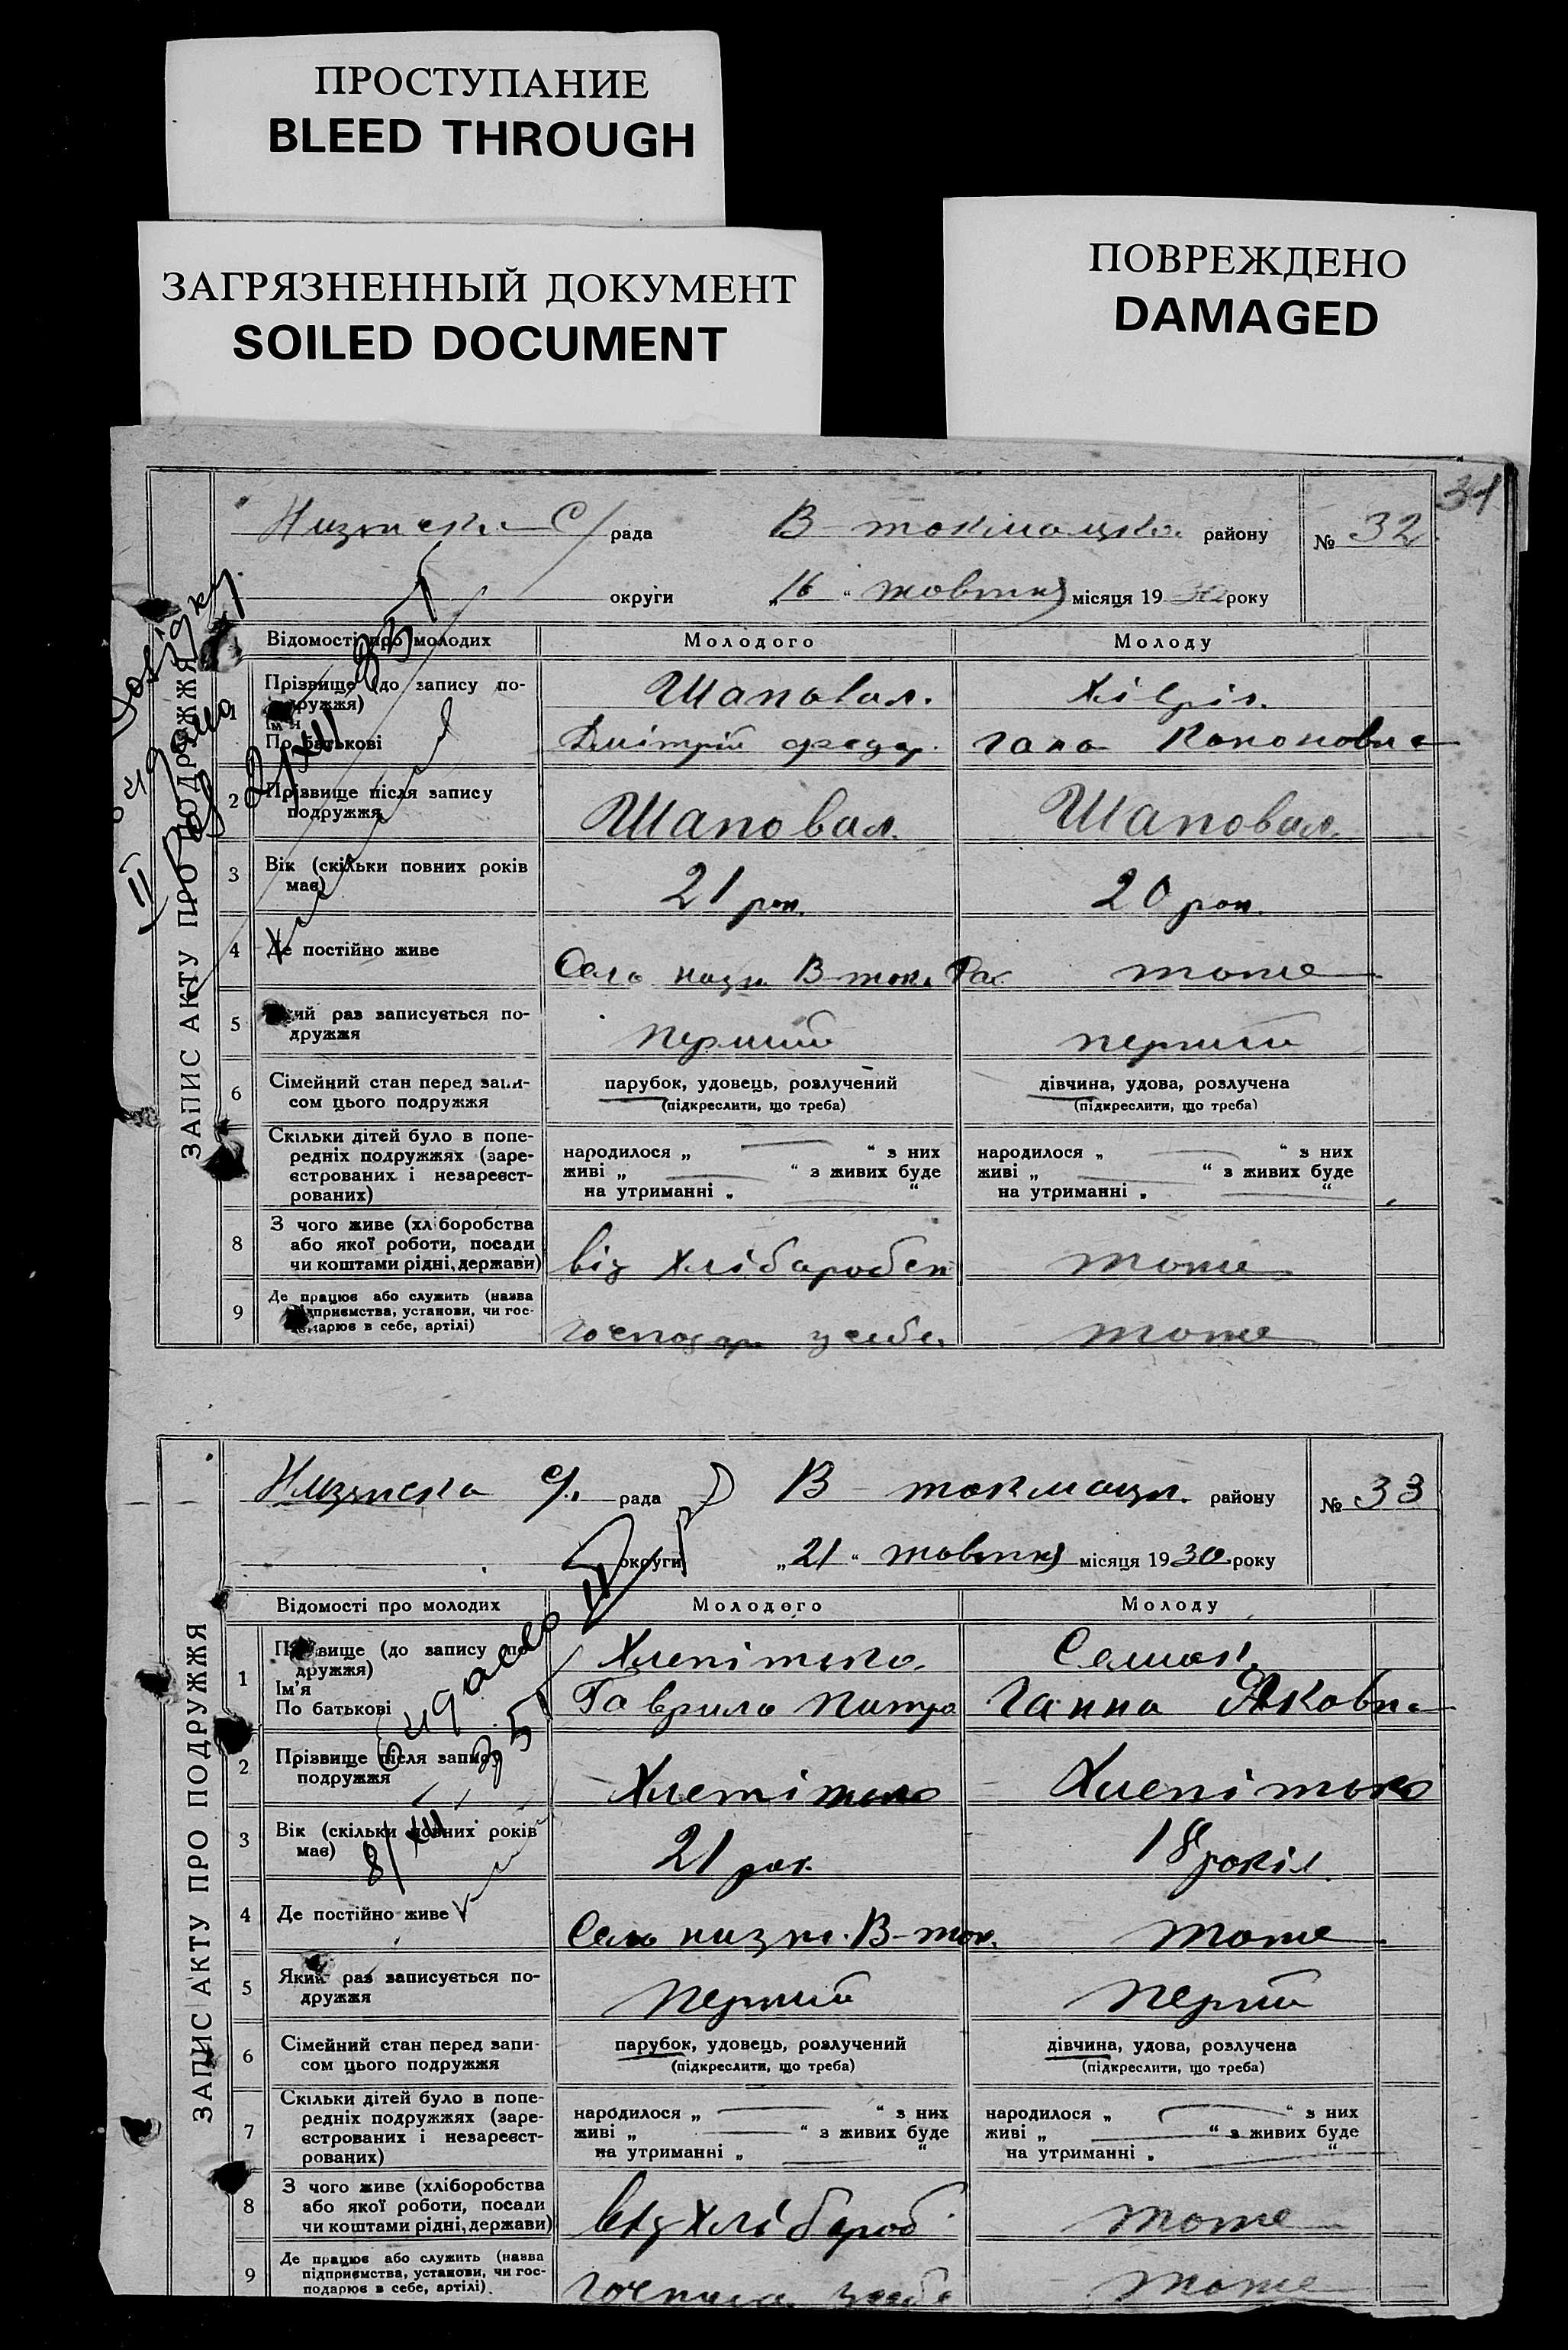 ПРОСТУПАНИЕ
BLEED THROUGH
ЗАГРЯЗНЕННЫЙ ДОКУМЕНТ
SOILED DOCUMENT
ПОВРЕЖДЕНО
DAMAGED
31
С/ рада В-токмацьк. району № 32
округи „16“ жовтня місяця 1930 року
ЗАПИС АКТУ ПРО ПОДРУЖЖЯ
Відомості про молодих Молодого Молоду
1 Прізвище (до запису по-
дружжя) Шаповал.
Ім'я
По батькові Дмітрій федор. Гана Кононовна
2 Прізвище після запису
подружжя Шаповал. Шаповал.
3 Вік (скільки повних років
має) 21 рок. 20 рок.
4 Де постійно живе Село В-ток. тоже
5 Який раз записується по-
дружжя перший перший
6 Сімейний стан перед запи-
сом цього подружжя
парубок, удовець, розлучений
(підкреслити, що треба)
дівчина, удова, розлучена
(підкреслити, що треба)
Скільки дітей було в попе-
редніх подружжях (заре-
єстрованих і незареєст-
рованих)
народилося „ “ з них
живі „ “ з живих буде
на утриманні „ “
народилося „ “ з них
живі „ “ з живих буде
на утриманні „ “
8 З чого живе (хліборобства
або якої роботи, посади
чи коштами рідні, держави) від тоже
9 Де працює або служить (назва
підприємства, установи, чи гос-
подарює в себе, артілі) господар у себе тоже
рада В-токмацьк. району № 33
округи „21“ жовтня місяця 1930 року
ЗАПИС АКТУ ПРО ПОДРУЖЖЯ
Відомості про молодих Молодого Молоду
1 Прізвище (до запису по-
дружжя)
Ім'я
По батькові Гаврило Ганна Яковна
2 Прізвище після запису
подружжя
3 Вік (скільки повних років
має) 21 рок. 18 років
4 Де постійно живе Село В-ток. тоже
5 Який раз записується по-
дружжя перший перший
6 Сімейний стан перед запи-
сом цього подружжя
парубок, удовець, розлучений
(підкреслити, що треба)
дівчина, удова, розлучена
(підкреслити, що треба)
7 Скільки дітей було в попе-
редніх подружжях (заре-
єстрованих і незареєст-
рованих)
народилося „ “ з них
живі „ “ з живих буде
на утриманні „ “
народилося „ “ з них
живі „ “ з живих буде
на утриманні „ “
8 З чого живе (хліборобства
або якої роботи, посади
чи коштами рідні, держави) від хлібороб тоже
9 Де працює або служить (назва
підприємства, установи, чи гос-
подарює в себе, артілі). тоже